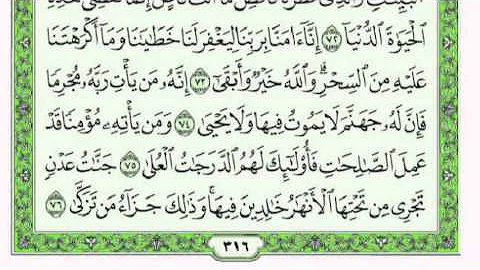 ٱلۡبَيِّنَٰتِ وَٱلَّذِي فَطَرَنَاۖ فَٱقۡضِ مَآ أَنتَ قَاضٍۖ إِنَّمَا تَقۡضِي هَٰذِهِ
ٱلۡحَيَوٰةَ ٱلدُّنۡيَآ ٧٢ إِنَّآ ءَامَنَّا بِرَبِّنَا لِيَغۡفِرَ لَنَا خَطَٰيَٰنَا وَمَآ أَكۡرَهۡتَنَا
عَلَيۡهِ مِنَ ٱلسِّحۡرِۗ وَٱللَّهُ خَيۡرٞ وَأَبۡقَىٰٓ ٧٣ إِنَّهُۥ مَن يَأۡتِ رَبَّهُۥ مُجۡرِمٗا
فَإِنَّ لَهُۥ جَهَنَّمَ لَا يَمُوتُ فِيهَا وَلَا يَحۡيَىٰ ٧٤ وَمَن يَأۡتِهِۦ مُؤۡمِنٗا قَدۡ
عَمِلَ ٱلصَّٰلِحَٰتِ فَأُوْلَٰٓئِكَ لَهُمُ ٱلدَّرَجَٰتُ ٱلۡعُلَىٰ ٧٥ جَنَّٰتُ عَدۡنٖ
تَجۡرِي مِن تَحۡتِهَا ٱلۡأَنۡهَٰرُ خَٰلِدِينَ فِيهَاۚ وَذَٰلِكَ جَزَآءُ مَن تَزَكَّىٰ ٧٦
٣١٦